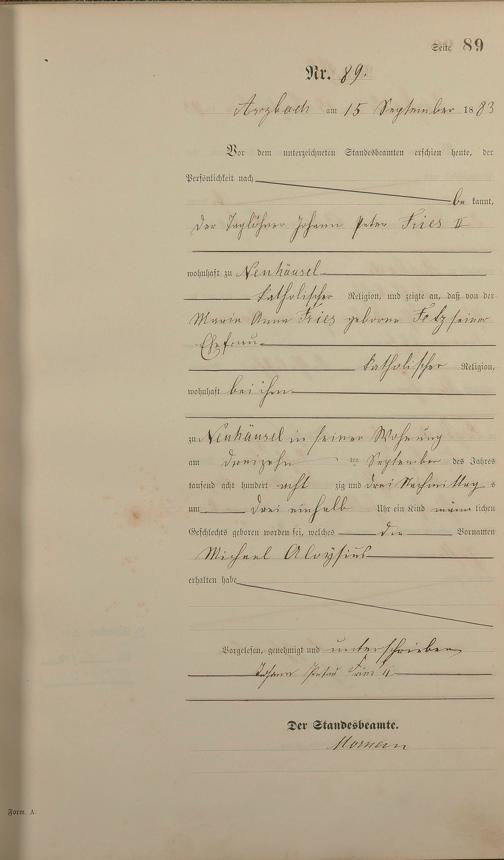 Seite 89
Nr. 89.
Arzbach am 15 September 1883
Vor dem unterzeichneten Standesbeamten erschien heute, der
Persönlichkeit nach
be kannt,
der Taglöhner Johann Peter Fries II
wohnhaft zu Neuhäusel
katholischer Religion, und zeigte an, daß von der
Maria Anna Fries geborne seiner
Ehefrau
katholischer Religion,
wohnhaft bei ihm
zu Neuhäusel in seiner Wohnung
am dreizehn ten September des Jahres
tausend acht hundert acht zig und drei Nachmittag s
um drei einhalb Uhr ein Kind männ lichen
Geschlechts geboren worden sei, welches die Vornamen
Michael Aloysius
erhalten habe
Vorgelesen, genehmigt und unterschrieben
Johann Peter Fries II
Der Standesbeamte.
Form. A.